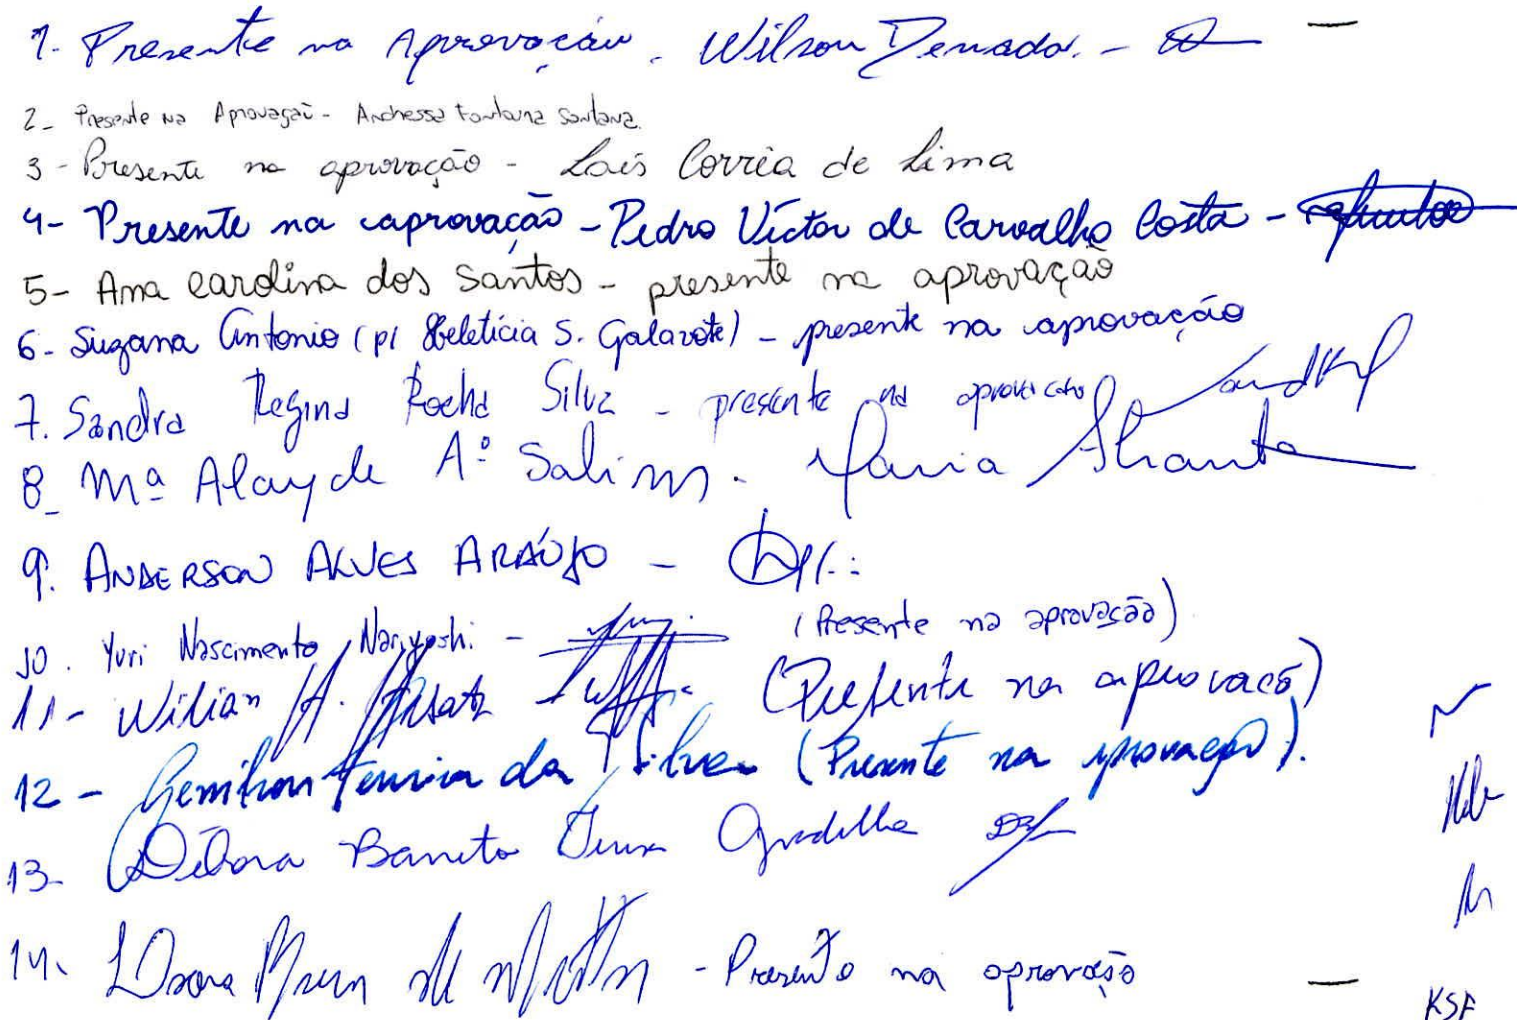 1- Presente na Aprovação. Wilson Denadai. -
2- Presente na Aprovação - Andressa Fontana Santana.
3- Presente na aprovação - Lais Corrêa de Lima
4- Presente na aprovação - Pedro Victor de Carvalho Costa -
5- Ana Carolina dos Santos - presente na aprovação
6- Suzana Antonio (p/ S. Galavote) - presente na aprovação
7. Sandra Regina Rocha Silva - presente na aprovação
8_ Mª Alayde Aº Salim. Maria
9. ANDERSON ALVES ARAÚJO -
10. Yuri Nascimento Nariyoshi - (Presente na aprovação)
11- Wilian A. (Presente na aprovacõ)
12 - Genilson Ferreira da Silva (Presente na aprovação).
13- Débora Barreto
14. - Presente na aprovação
KSF